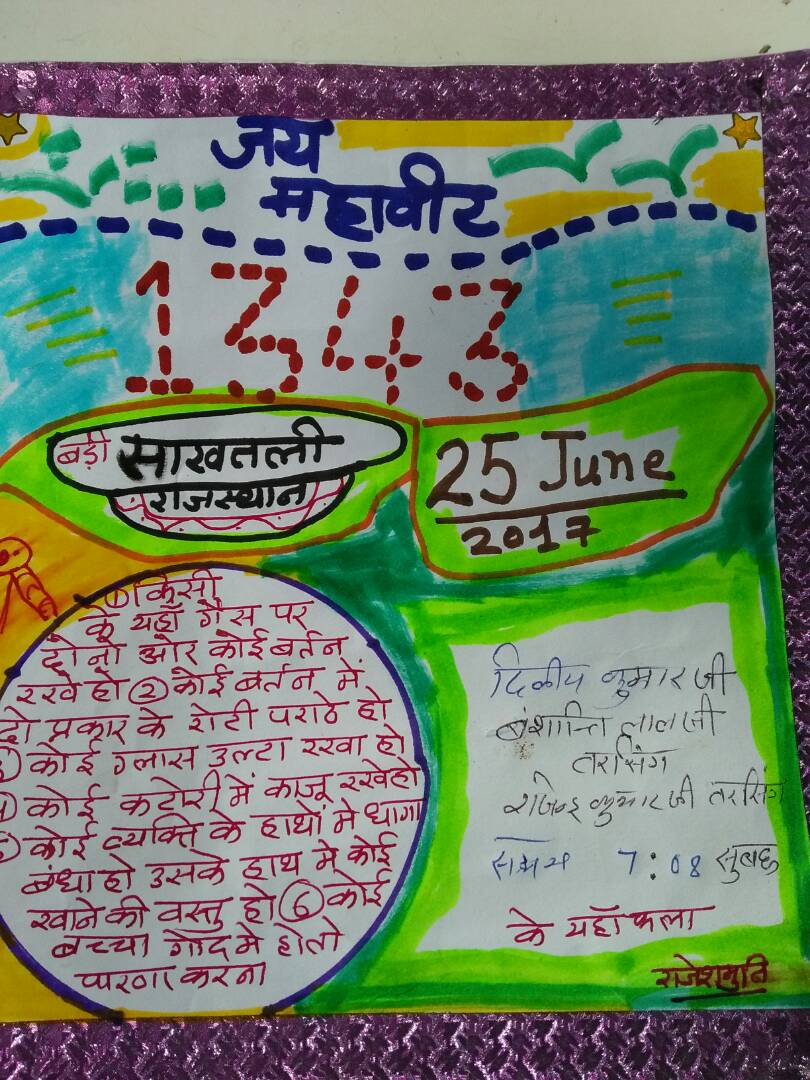 जय
महावीर
1343
बड़ी साखतली
राजस्थान
25 June
2017
① किसी
के यहाँ गैस पर
दोनो ओर कोई बर्तन
रखे हो ② कोई बर्तन में
दो प्रकार के रोटी पराठे हो
③ कोई ग्लास उल्टा रखा हो
④ कोई कटोरी में काजू रखेहो
⑤ कोई व्यक्ति के हाथों मे धागा
बंधा हो उसके हाथ मे कोई
खाने की वस्तु हो ⑥ कोई
बच्चा गोदमे होतो
पारणा करना
दिलीप कुमार जी
लालजी
तरसिंग
राजेन्द्र कुमार जी तरसिंग
समय 7:08 सुबह
के यहाँ फला
राजेशमुनि